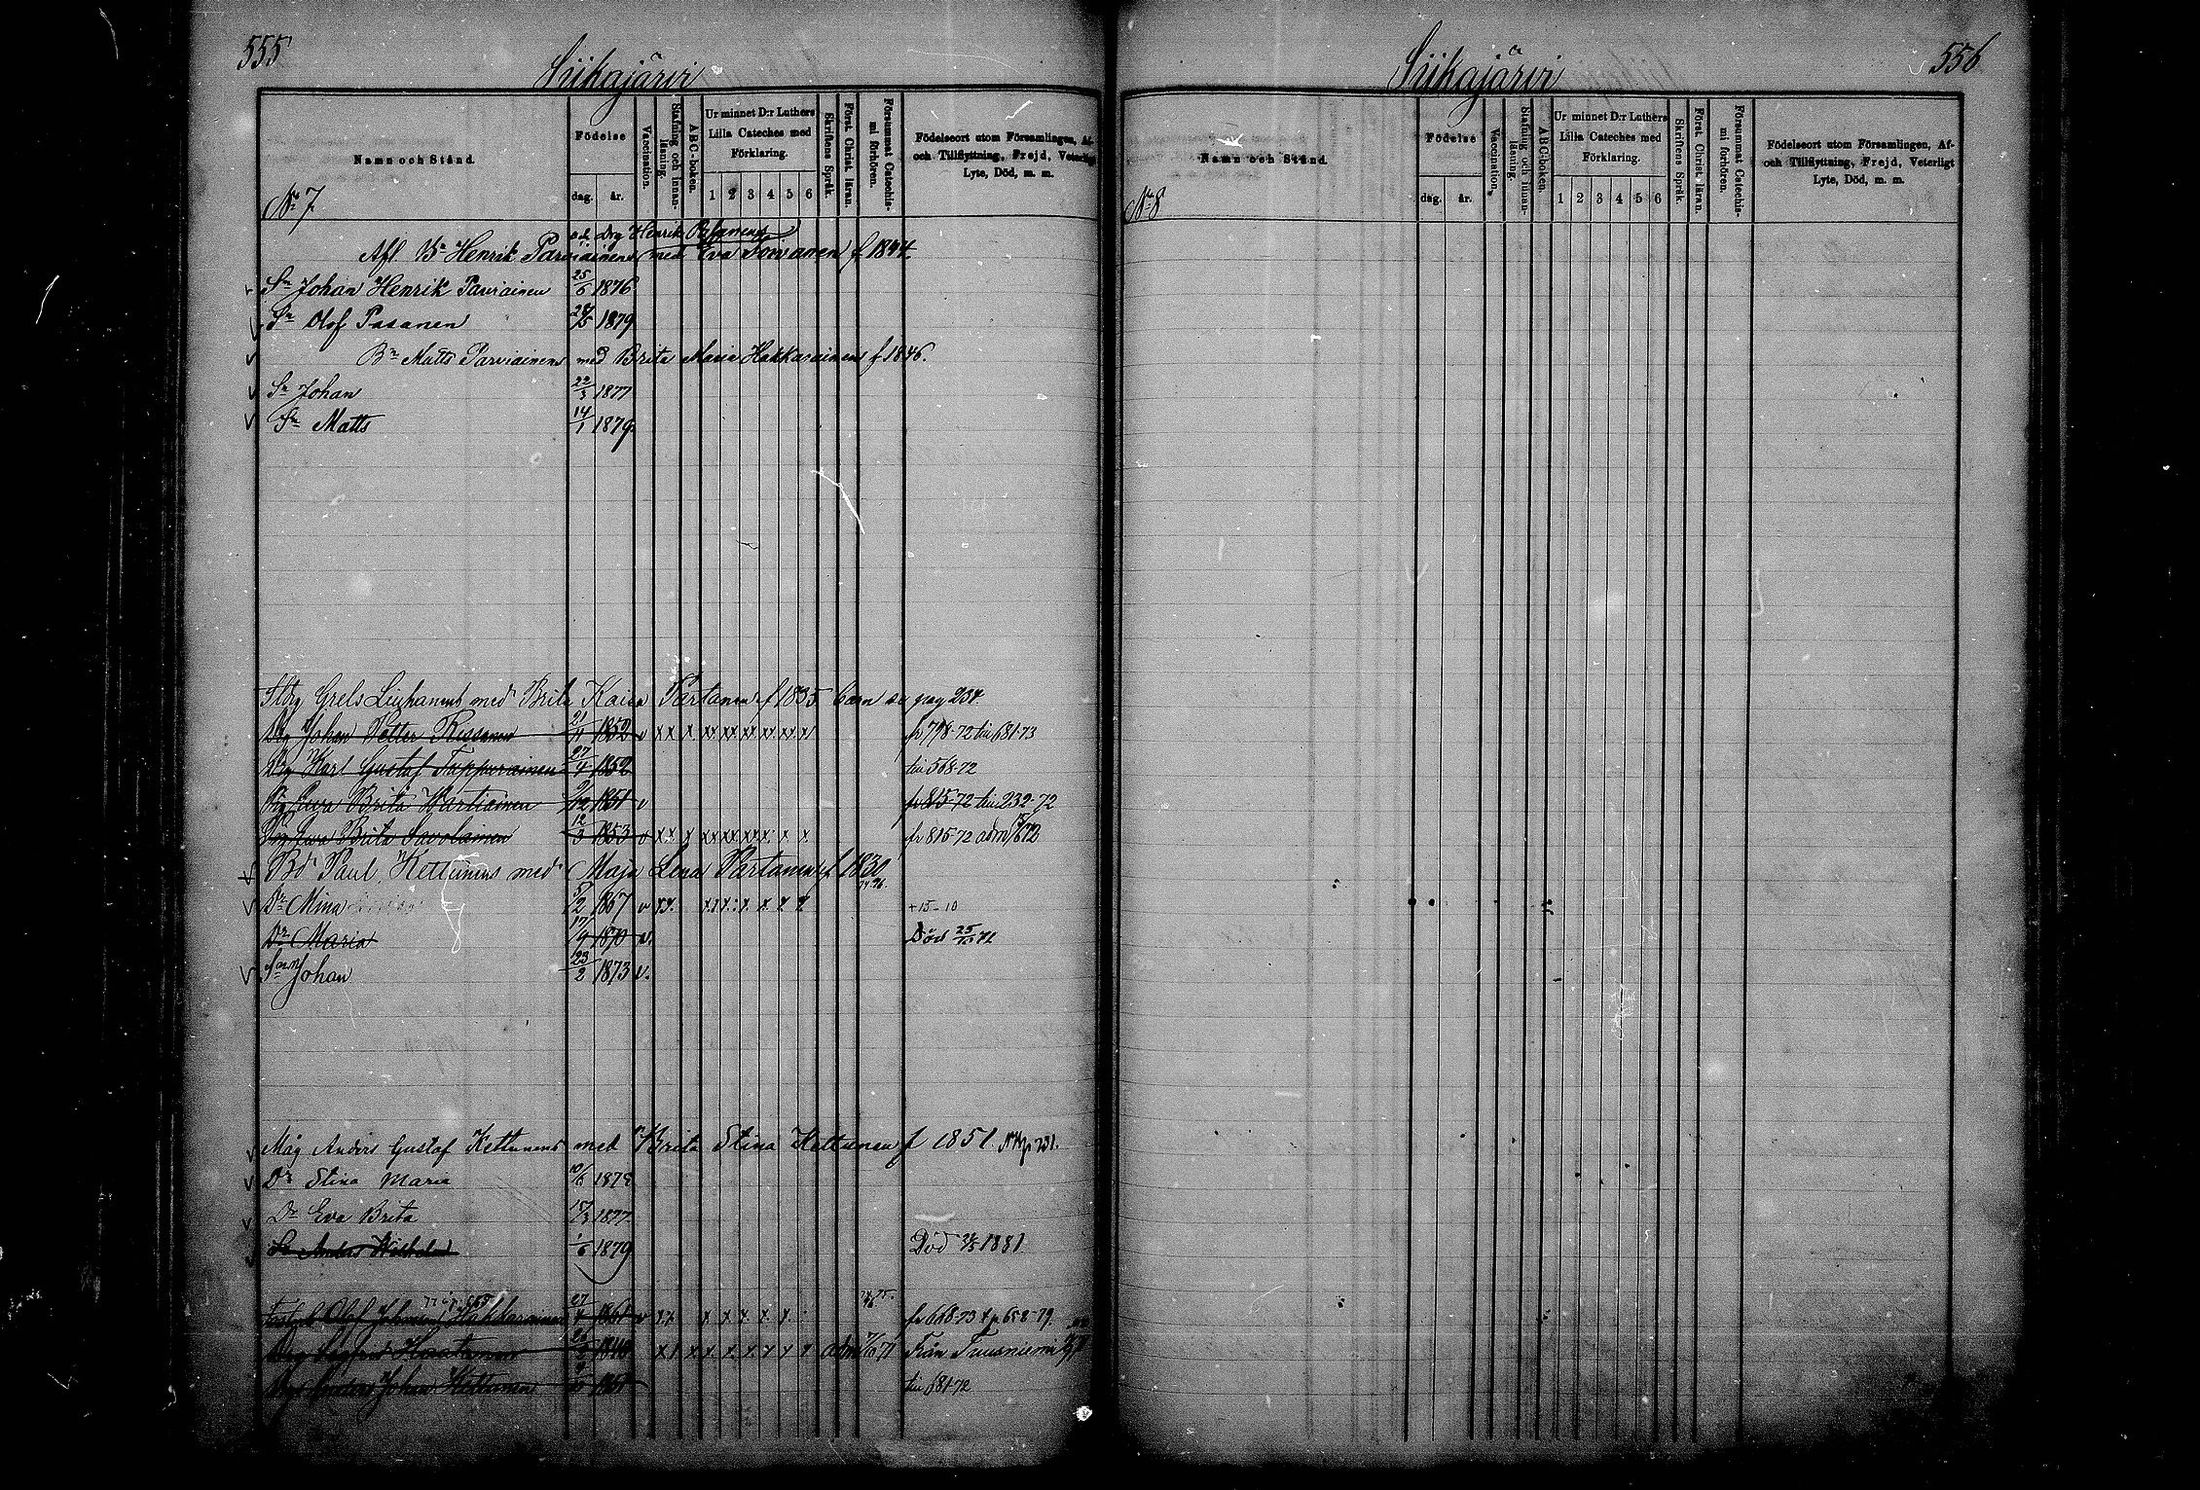 555
Siikajärvi
Namn och Stånd.
Födelse
dag. år.
Vaccination.
Stafning och innanläsning.
ABC-boken.
Ur minnet D:r Luthers Lilla Cateches med Förklaring.
1 2 3 4 5 6
Skriftens Språk.
Först. Christ. läran.
Försummat Catechismi förhören.
Födelseort utom Församlingen, Af- och Tillflyttning, Frejd, Veterligt Lyte, Död, m. m.
No 7
o.ä. Drg Henrik
Afl. Bn Henrik Parviainens med Eva Toivanen f. 1844.
Sn Johan Henrik Parviainen 25/6 1876
Sn Olof Pasanen 1879
Bn Matts Parviainens med Brita Maria Hakkarainens f 1846.
Sn Johan 22/3 1877
Sn Matts 14/1 1879
Grels med Brita Kaisa Partanen f 1835 barn se pag 234.
Drg Johan Petter Kissanen 21/11 1852 v xx x xx xx xx xx xx fr 798-72 till 681-73
Drg Karl Gustaf 27/4 1852 till 568-72
Pig Ewa Brita Wartiainen 1851 v fr 815-72 till 232-72
Pig Ewa Brita Savolainen 12/3 1853 v fr 815-72
Bd Paul Kettunens med Maja Lena Partanen f. 1830
Dr Mina 5/2 1867 v +15-10
Dr Maria 17/9 1870 v. Död 25/10 71
Son Johan 23/2 1873 v.
Måg Anders Gustaf Kettunens med Brita Stina Kettunen f 1851
Dr Stina Maria 1875
Dr Eva Brita 1877
Sn Anders Wilhelm 1/6 1879 Död 1881
Olof Johan Hakkarainen 27/4 1861 v xx x x x x x fr 668-73 p 658-79.
1849 adm 71 Från Tuusniemi
Drg Anders Johan Kettunen 1851 till 681-72
556
Siikajärvi
Namn och Stånd.
Födelse
dag. år.
Vaccination.
Stafning och innanläsning.
ABC-boken.
Ur minnet D:r Luthers Lilla Cateches med Förklaring.
1 2 3 4 5 6
Skriftens Språk.
Först. Christ. läran.
Försummat Catechismi förhören.
Födelseort utom Församlingen, Af- och Tillflyttning, Frejd, Veterligt Lyte, Död, m. m.
No 8